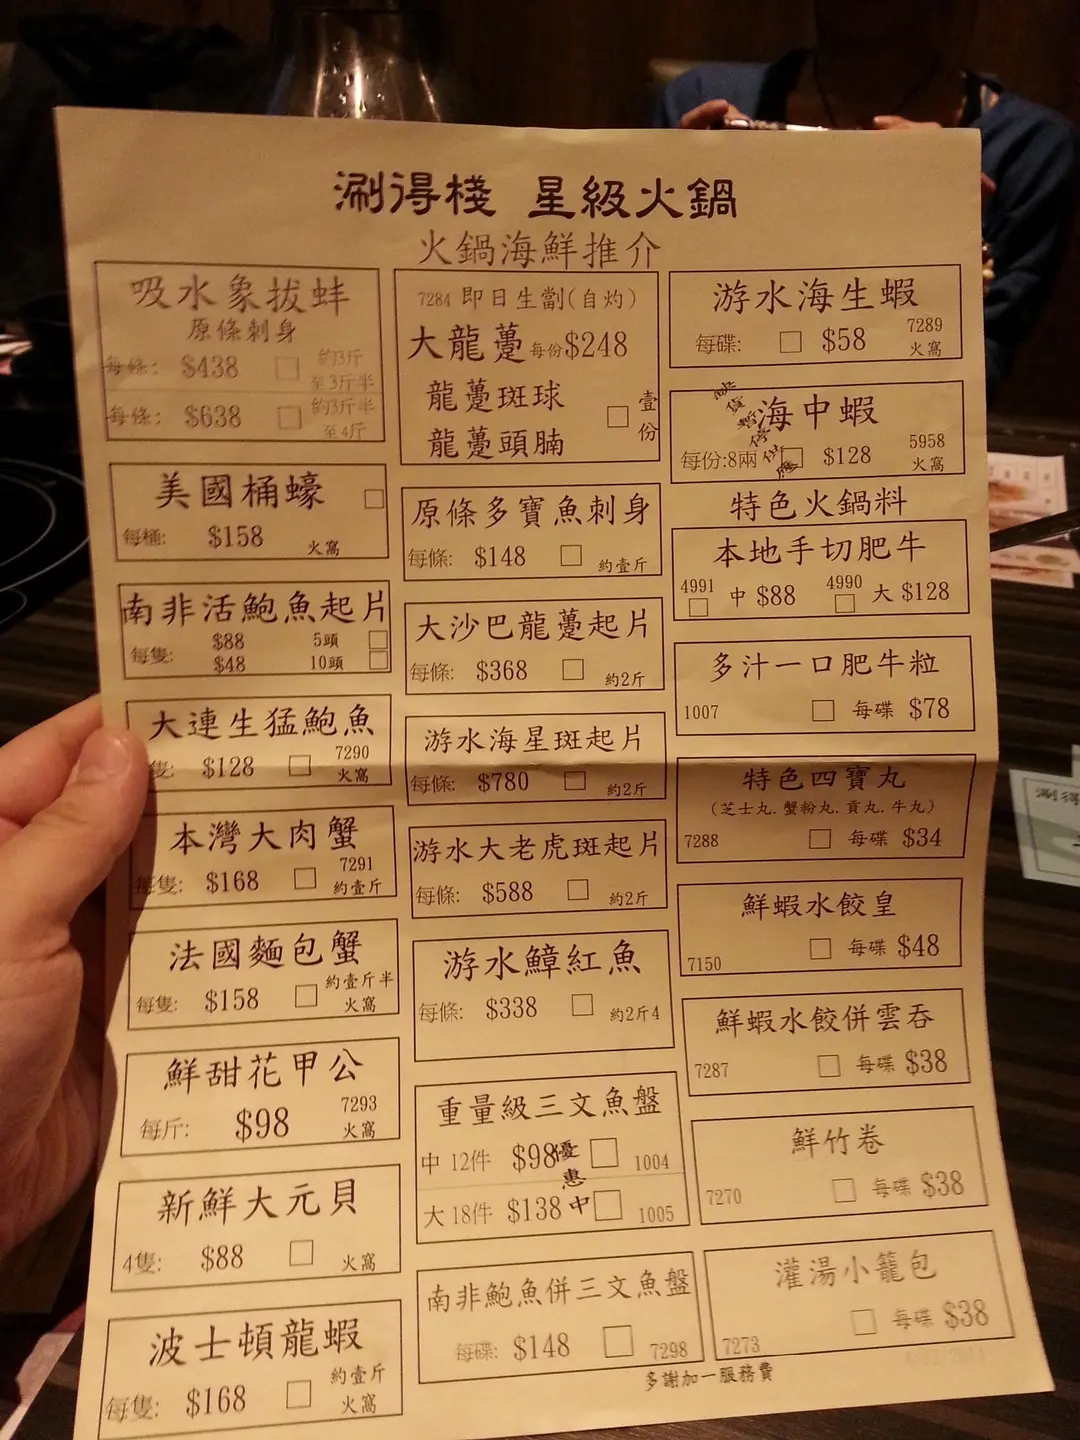 涮得棧 星級火鍋
火鍋海鮮推介
吸水象拔蚌
原條刺身
每條: $438 □ 約3斤
至3斤半
每條: $638 □ 約3斤半
至4斤
美國桶蠔 □
每桶: $158 火窩
南非活鮑魚起片
每隻: $88 5頭 □
$48 10頭 □
大連生猛鮑魚
隻: $128 □ 7290
火窩
本灣大肉蟹
每隻: $168 □ 7291
約壹斤
法國麵包蟹
每隻: $158 □ 約壹斤半
火窩
鮮甜花甲公
每斤: $98 7293
火窩
新鮮大元貝
4隻: $88 □ 火窩
波士頓龍蝦
每隻: $168 □ 約壹斤
火窩
7284 即日生劏(自灼)
大龍躉 每份$248
龍躉斑球
龍躉頭腩
□ 壹份
原條多寶魚刺身
每條: $148 □ 約壹斤
大沙巴龍躉起片
每條: $368 □ 約2斤
游水海星斑起片
每條: $780 □ 約2斤
游水大老虎斑起片
每條: $588 □ 約2斤
游水鱆紅魚
每條: $338 □ 約2斤4
重量級三文魚盤
中 12件 $98 □ 1004
大 18件 $138 □ 1005
優惠中
南非鮑魚併三文魚盤
每碟: $148 □ 7298
游水海生蝦
每碟: □ $58 7289
火窩
海中蝦
每份:8兩 □ $128 5958
火窩
特色火鍋料
本地手切肥牛
4991 □ 中 $88 4990 □ 大 $128
多汁一口肥牛粒
1007 □ 每碟 $78
特色四寶丸
(芝士丸. 蟹粉丸. 貢丸. 牛丸)
7288 □ 每碟 $34
鮮蝦水餃皇
7150 □ 每碟 $48
鮮蝦水餃併雲吞
7287 □ 每碟 $38
鮮竹卷
7270 □ 每碟 $38
灌湯小籠包
7273 □ 每碟 $38
多謝加一服務費